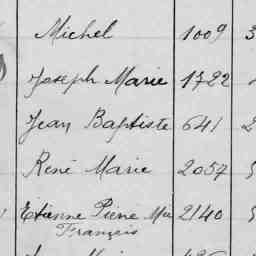 Michel 1009 3
Joseph Marie 1722
Jean Baptiste 641 2
René Marie 2057 5
Etienne Pierre Mie 2140 5
François